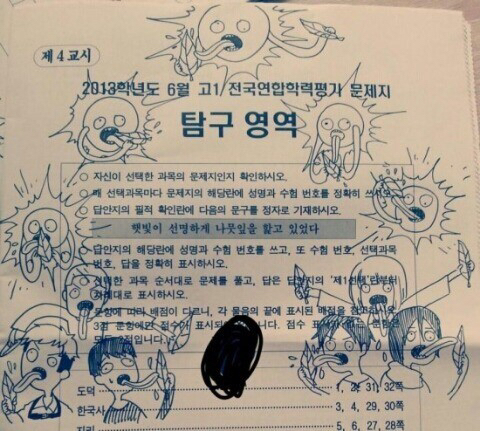 제 4 교시
2013학년도 6월 고1 전국연합학력평가 문제지
탐구 영역
○ 자신이 선택한 과목의 문제지인지 확인하시오.
○ 매 선택과목마다 문제지의 해당란에 성명과 수험 번호를 정확히 쓰시오.
○ 답안지의 필적 확인란에 다음의 문구를 정자로 기재하시오.
햇빛이 선명하게 나뭇잎을 핥고 있었다
답안지의 해당란에 성명과 수험 번호를 쓰고, 또 수험 번호, 선택과목
번호, 답을 정확히 표시하시오.
선택한 과목 순서대로 문제를 풀고, 답은 답안지의 '제1선택'란부터
차례대로 표시하시오.
문항에 따라 배점이 다르니, 각 물음의 끝에 표시된 배점을 참고하시오.
3점 문항에만 점수가 표시되 니다. 점수 표시가 없는 문항은
점입니다.
도덕 1, 2, 31, 32쪽
한국사 3, 4, 29, 30쪽
지리 5, 6, 27, 28쪽